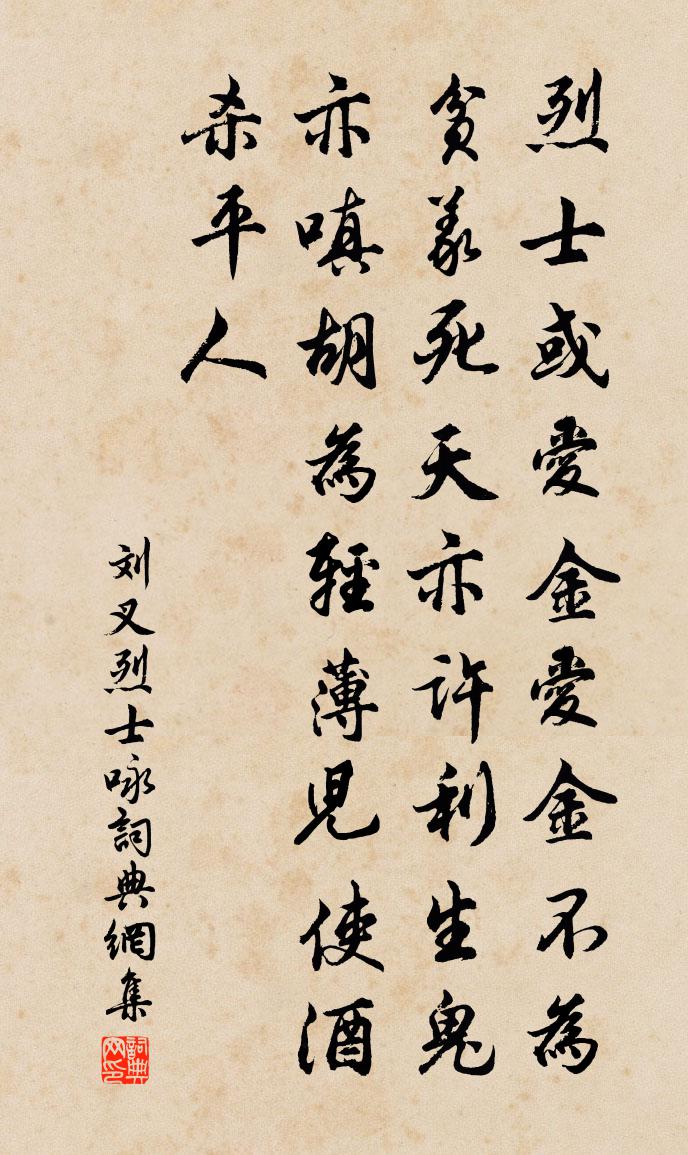 烈士或愛金愛金不為
貧義死天亦許利生鬼
亦嗔胡為輕薄兒使酒
杀平人
刘叉烈士咏詞典網集
詞典网印